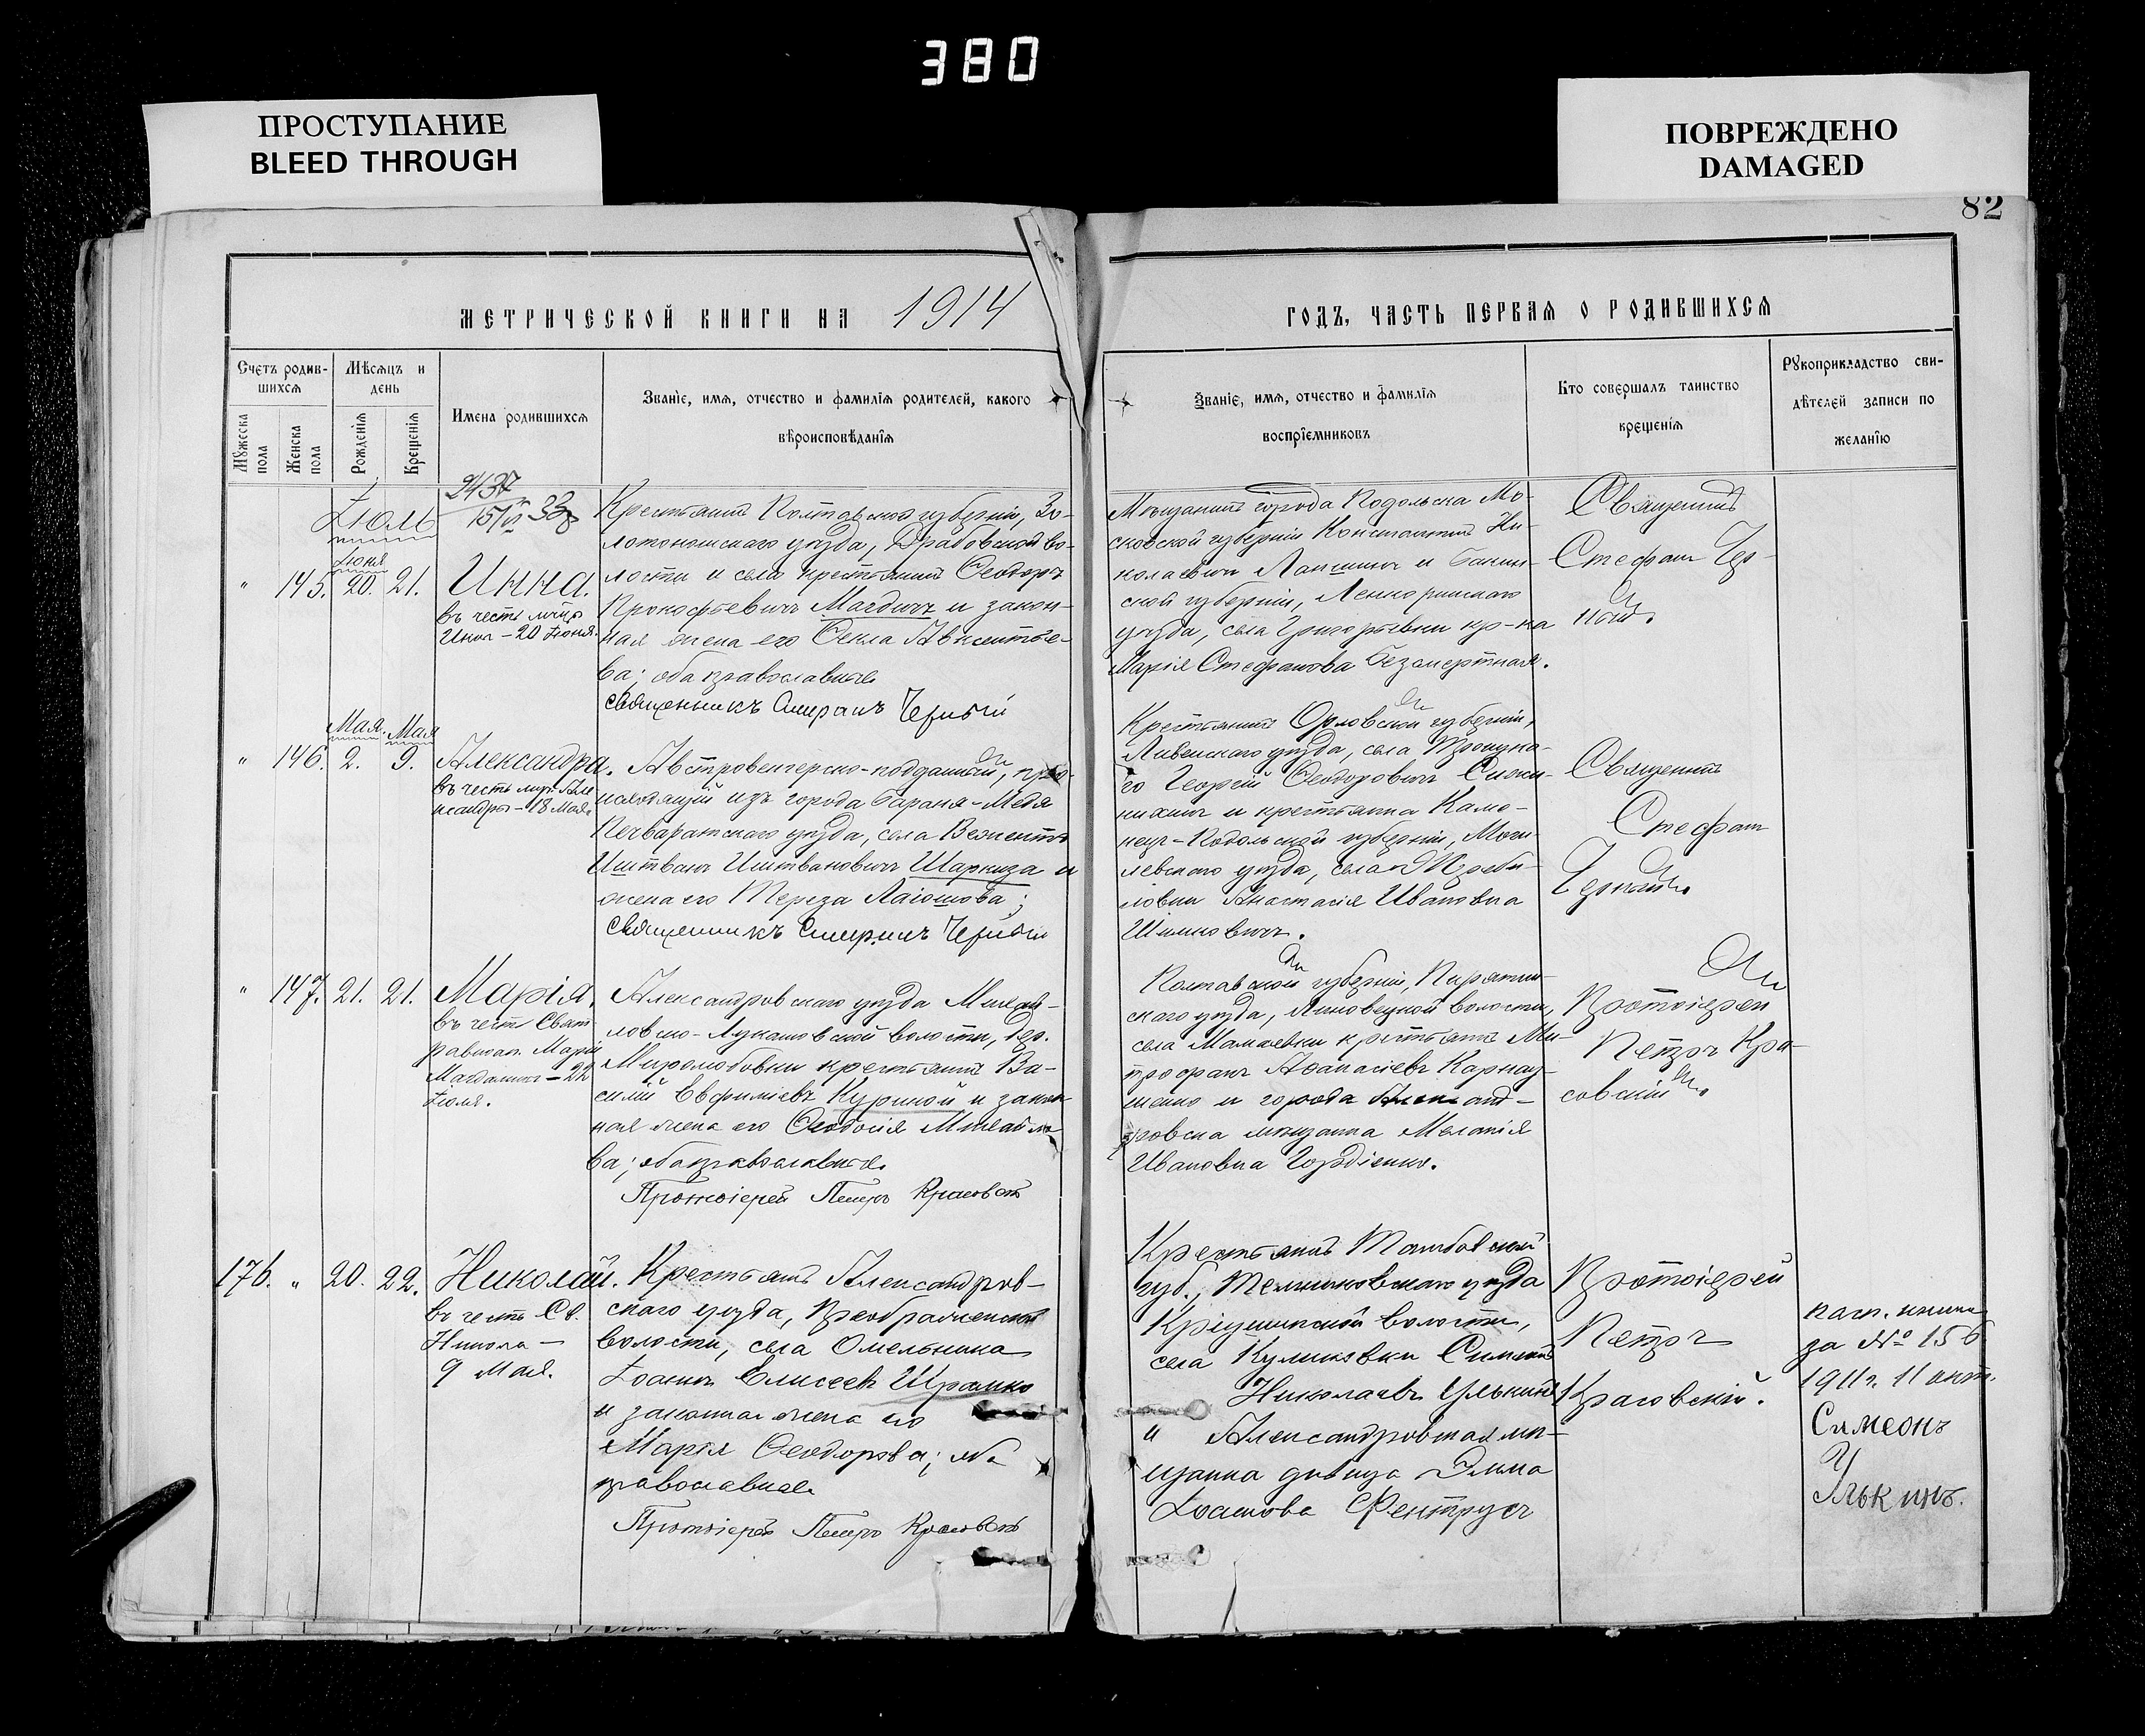 380
ПРОСТУПАНИЕ
BLEED THROUGH
ПОВРЕЖДЕНО
DAMAGED
82
МЕТРИЧЕСКОЙ КНИГИ НА 1914
ГОДЪ, ЧАСТЬ ПЕРВАЯ О РОДИВШИХСЯ
Счетъ родив-
шихся
Мѣсяцъ и
день
Мужеска пола
Женска пола
Рожденія
Крещенія
Имена родившихся
Званіе, имя, отчество и фамилія родителей, какого
вѣроисповѣданія
Званіе, имя, отчество и фамилія
воспріемниковъ
Кто совершалъ таинство
крещенія
Рукоприкладство сви-
дѣтелей записи по
желанію
Іюль
2437
Іюня
" 145. 20. 21. Инна.
въ честь
Инны - 20 Іюня.
Крестьянинъ Полтавской губерніи, Зо-
лотоношскаго уѣзда, Драбовской во-
лости и села крестьянинъ Ѳеодоръ
Прокофьевичъ Магдичъ и закон-
ная жена его Ѳекла Авксентье-
ва; оба православные.
Священникъ Стефанъ Черный
Мѣщанинъ города Подольска Мо-
сковской губерніи Константинъ Ни-
колаевичъ Лапшинъ и Бакин-
ской губерніи, Ленкоранскаго
уѣзда, села Григорьевки кр-ка
Марія Стефанова Безсмертная.
Священникъ
Стефанъ Чер-
ный.
Мая. Мая
" 146. 2. 9. Александра.
въ честь муч. Але
ксандры - 18 Мая.
Австровенгерско-подданный, про-
исходящій изъ города Бараня-Медя
Печваратскаго уѣзда, села
Иштванъ Иштвановичъ Шаркиза и
жена его Тереза Лаіошова;
Священникъ Стефанъ Черный
Крестьянинъ Орловской губерніи,
Ливенскаго уѣзда, села Троицка-
го Георгій Ѳеодоровичъ
и крестьянка Каме-
нец-Подольской губерніи, Моги-
левскаго уѣзда, села
Анастасія Ивановна
Шимковичъ.
Священникъ
Стефанъ
Черный.
" 147. 21. 21. Марія.
въ честь Свят.
равноап. Маріи
Магдалины - 22
Іюля.
Александровскаго уѣзда Михай-
ловско-Лукашовской волости, дер.
Миролюбовки крестьянинъ Ва-
силій Евфиміевъ Куриной и закон
ная жена его Ѳеодосія Михайло
ва; оба православные.
Протоіерей Петръ Красовскій
Полтавской губерніи, Пирятин-
скаго уѣзда, Яновецкой волости,
села Мамаевки крестьянинъ Ми-
трофанъ Аѳанасіевъ Карнау-
шенко и города Александ-
ровска мѣщанка Меланія
Ивановна Гордіенко.
Протоіерей
Петръ Кра-
совскій.
176. " 20. 22. Николай.
въ честь Св.
Никола -
9 Мая.
Крестьянинъ Александров-
скаго уѣзда, Преображенской
волости, села Омельника
Іоаннъ Елисеевъ Шрамко
и законная жена его
Марія Ѳеодорова; оба
православные.
Протоіерей Петръ Красовскій
Крестьянинъ Тамбовской
губ., Темниковскаго уѣзда
волости,
села Куликовки Симеонъ
Николаевъ Улькинъ
и Александровская мѣ-
щанка дѣвица Эмма
Іоаннова
Протоіерей
Петръ
Красовскій.
пасп. книжка
за № 156
1911 г. 11 окт.
Симеонъ
Улькинъ.